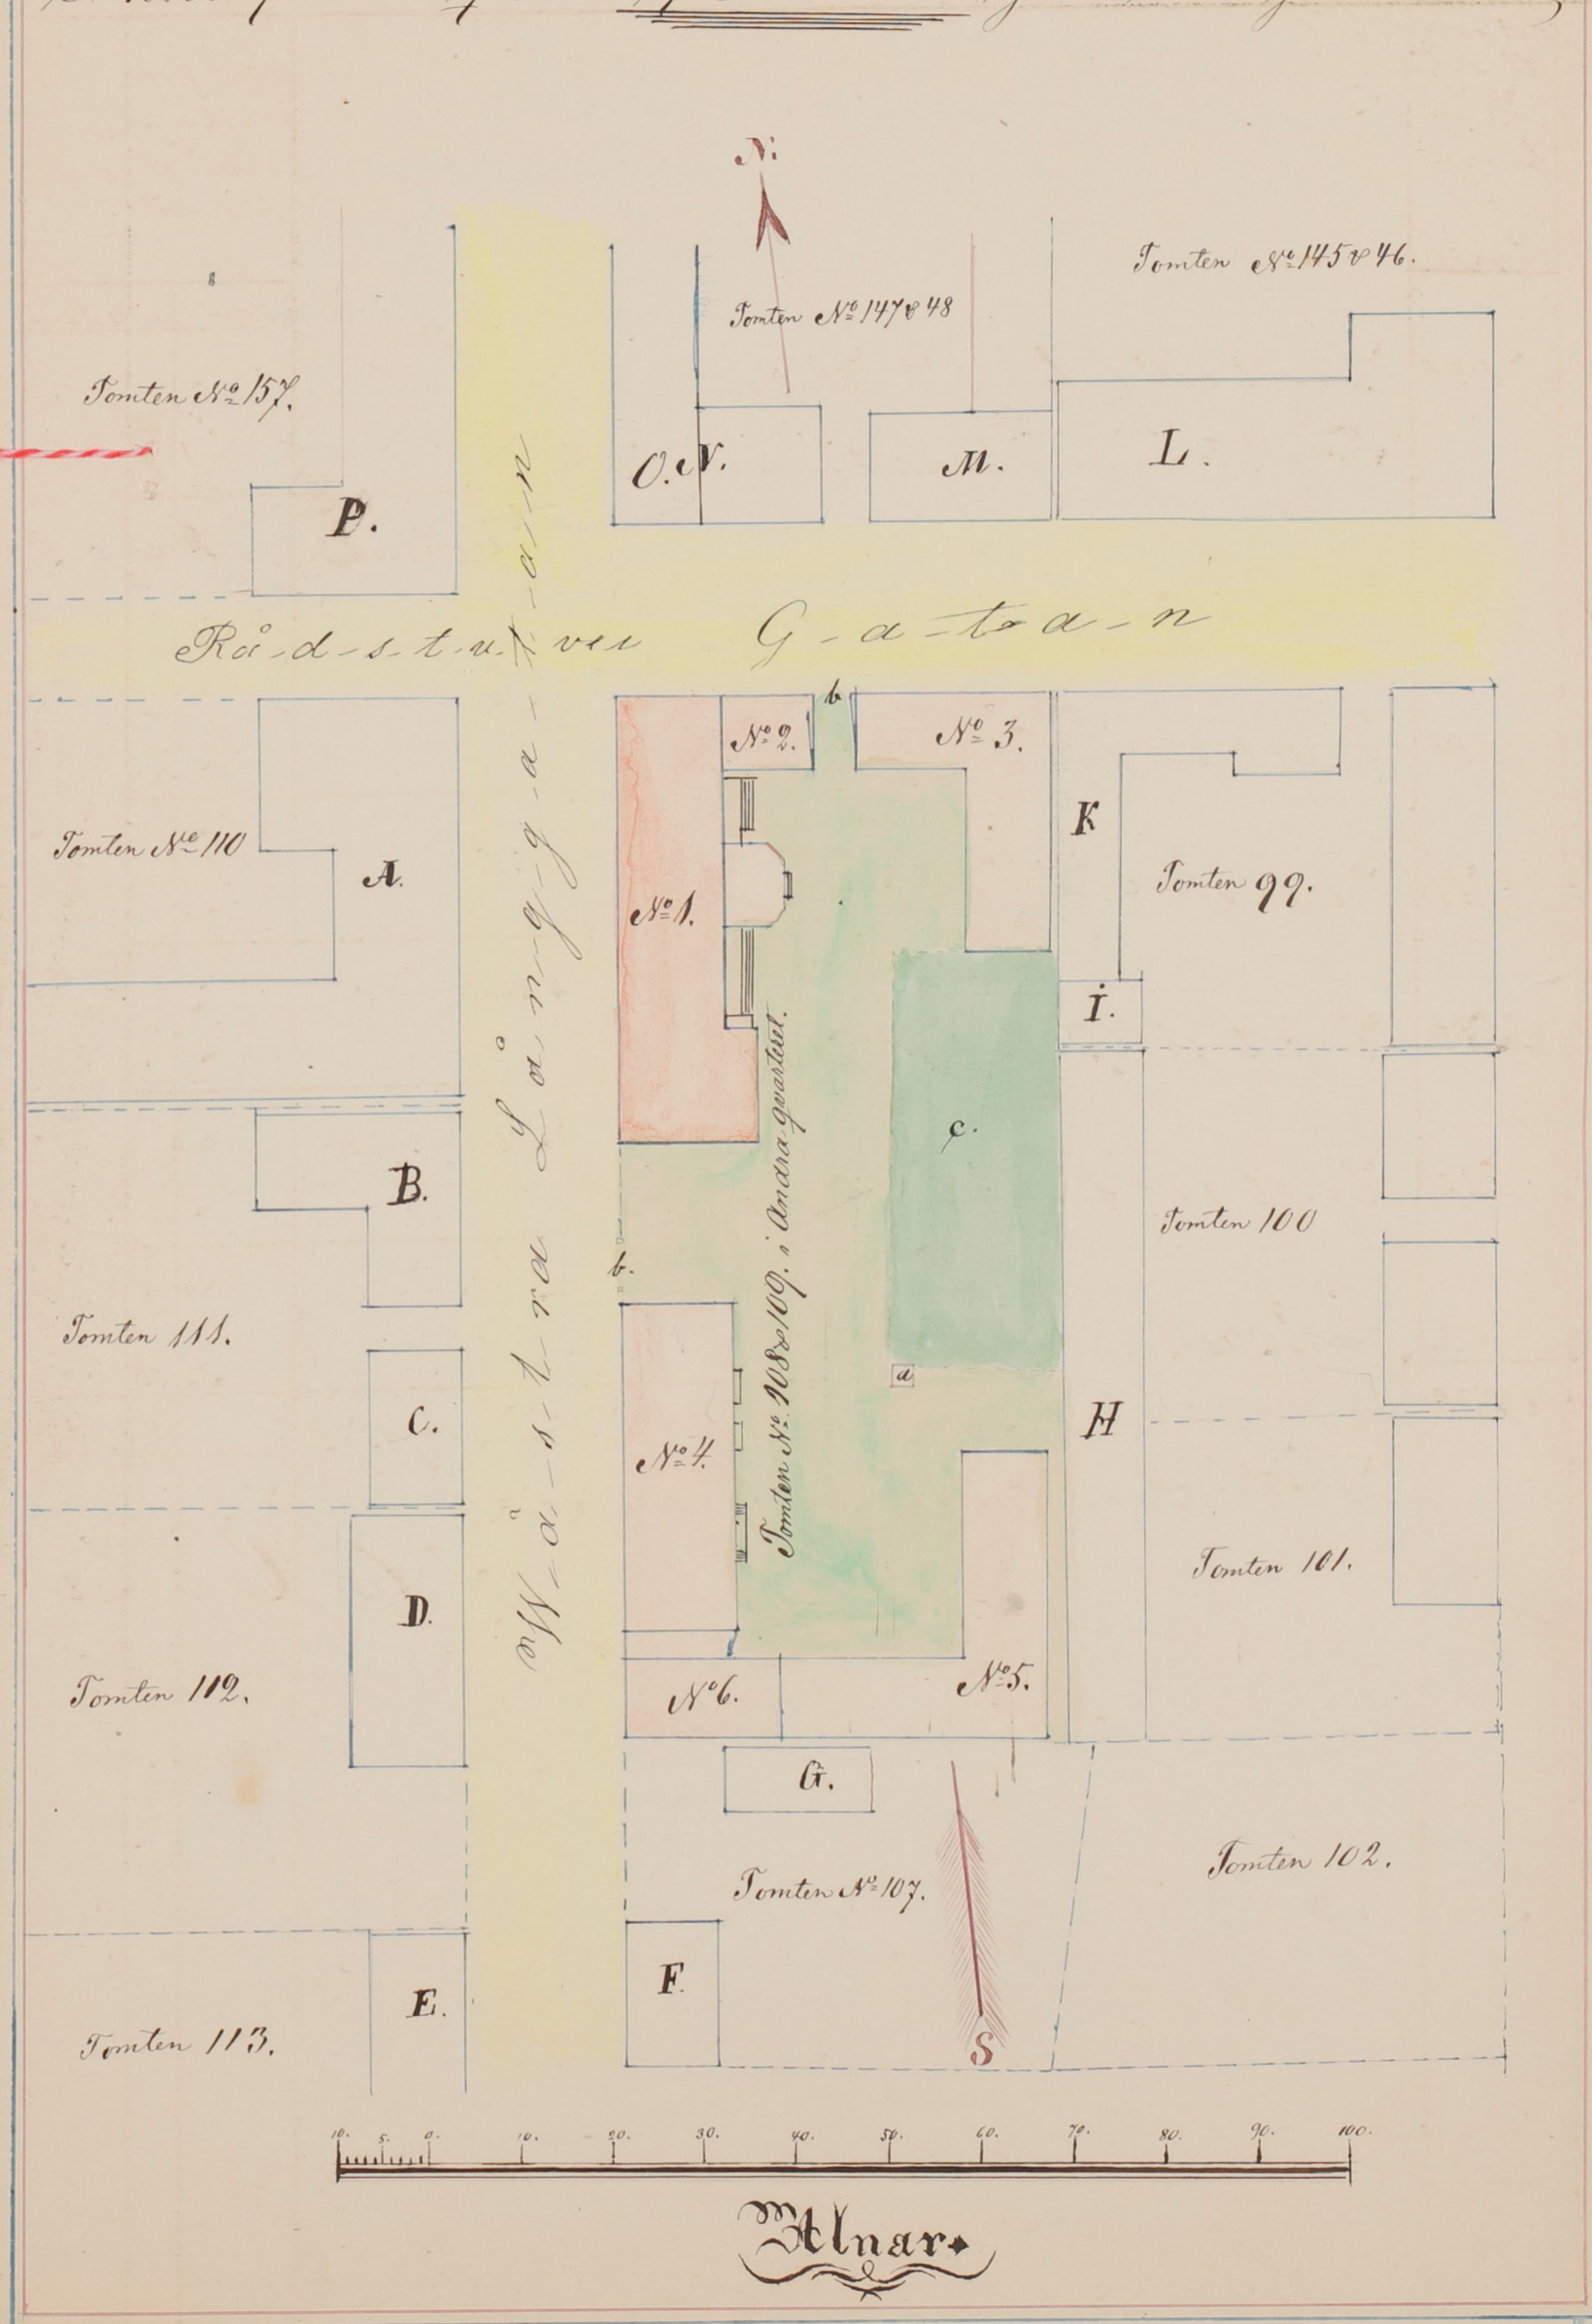 N.
Tomten No 145 & 46.
Tomten No 147 & 48
Tomten No 157.
O. N. M. L.
P.
Rådstuvei Gatan
Wästra Långgatan
b
No 2. No 3.
K
Tomten No 110
A.
Tomten 99.
No 1.
I.
c.
B.
Tomten 100
b.
Tomten 111.
Tomten No 108 & 109. i Andra qvarteret.
a
C.
H
No 4.
Tomten 101.
D.
No 5.
Tomten 112.
No 6.
G.
Tomten 102.
Tomten No 107.
F.
E.
S
Tomten 113.
10. 5. 0. 10. 20. 30. 40. 50. 60. 70. 80. 90. 100.
Alnar